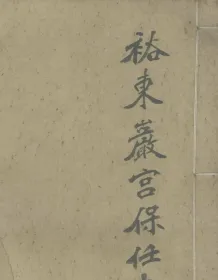 裕東巖宮保任